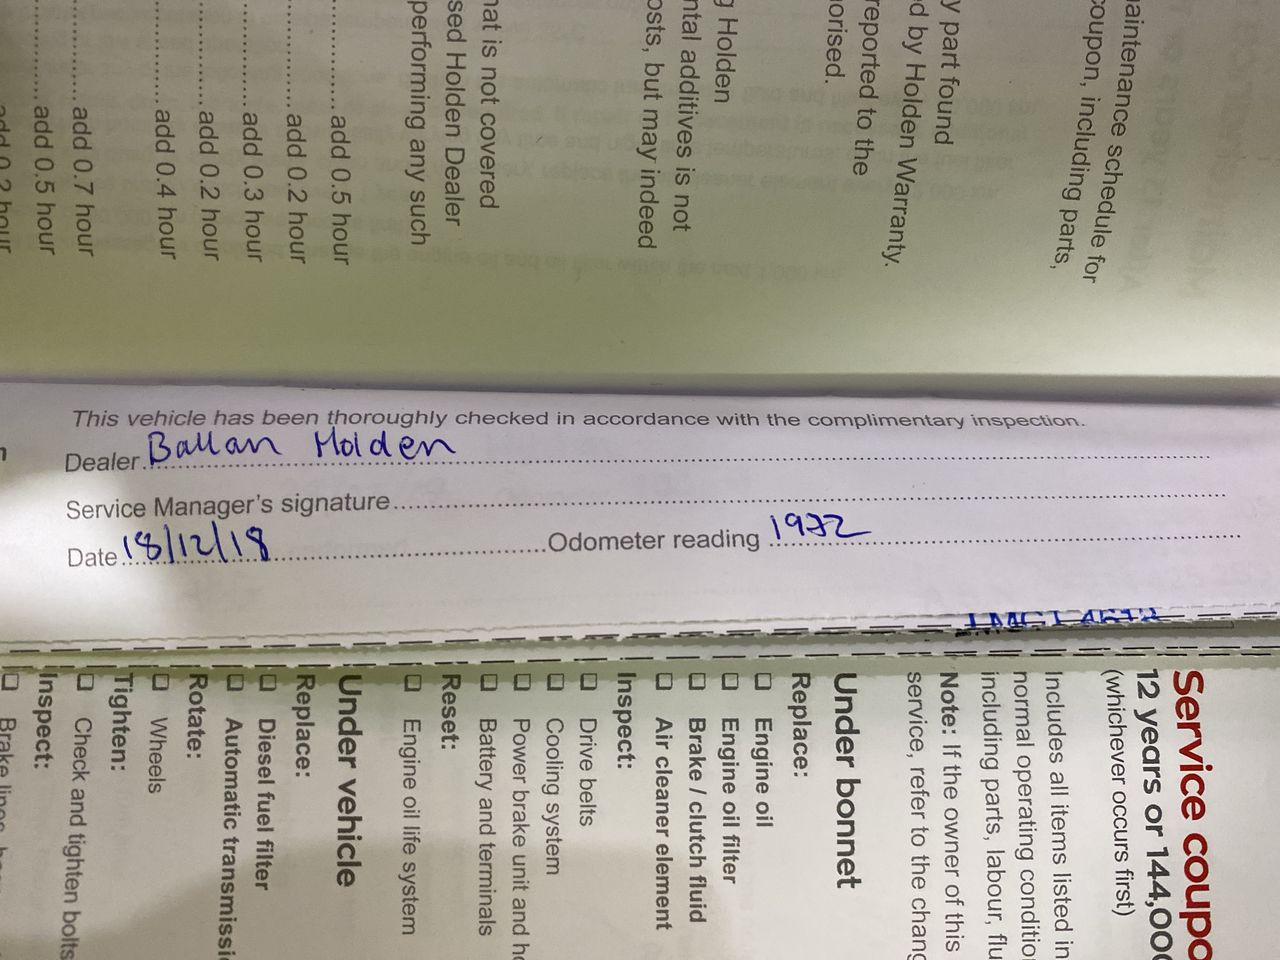 This vehicle has been thoroughly checked in accordance with the complimentary inspection.
Dealer Ballan Holden
Service Manager's signature
Date 18/12/18 Odometer reading 1972
aintenance schedule for
coupon, including parts,
y part found
ed by Holden Warranty.
reported to the
orised.
g Holden
ntal additives is not
osts, but may indeed
hat is not covered
sed Holden Dealer
performing any such
add 0.5 hour
add 0.2 hour
add 0.3 hour
add 0.2 hour
add 0.4 hour
add 0.7 hour
add 0.5 hour
add 0.2 hour
Service coupo
12 years or 144,000
(whichever occurs first)
Includes all items listed in
normal operating conditio
including parts, labour, flu
Note: If the owner of this
service, refer to the chang
Under bonnet
Replace:
Engine oil
Engine oil filter
Brake / clutch fluid
Air cleaner element
Inspect:
Drive belts
Cooling system
Power brake unit and ho
Battery and terminals
Reset:
Engine oil life system
Under vehicle
Replace:
Diesel fuel filter
Automatic transmissi
Rotate:
Wheels
Tighten:
Check and tighten bolts
Inspect:
Brake lines